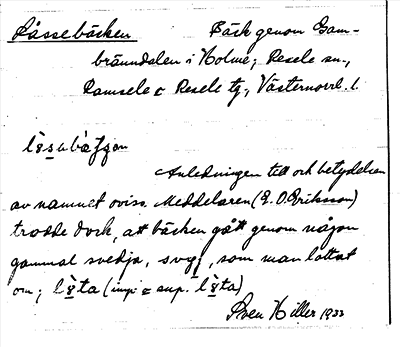 Låssebäcken Bäck genom Gam-
bränndalen i Holme, Resele sn.,
Ramsele o Resele tg., Västernorrl. l.
Anledningen till och betydelsen
av namnet oviss. Meddelaren (E. O. Eriksson)
trodde dock, att bäcken gått genom någon
gammal svedja, som man låttat
om;
Sven Hiller 1933